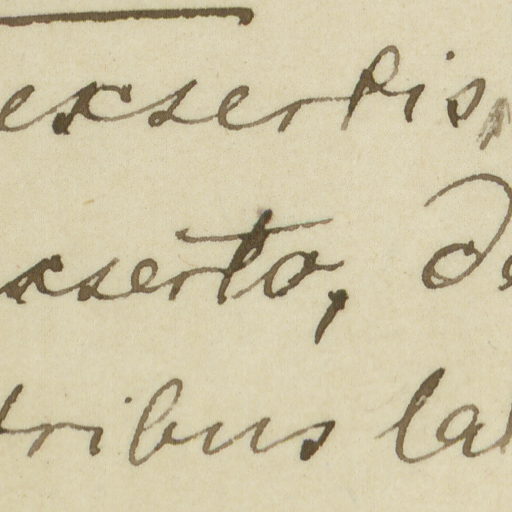 exsertis,
xserto, de
tribus la